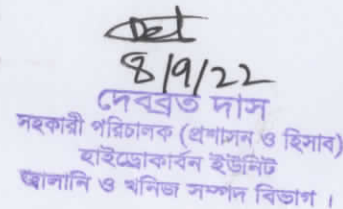 8/9/22
দেবব্রত দাস
সহকারী পরিচালক (প্রশাসন ও হিসাব)
হাইড্রোকার্বন ইউনিট
জ্বালানি ও খনিজ সম্পদ বিভাগ।